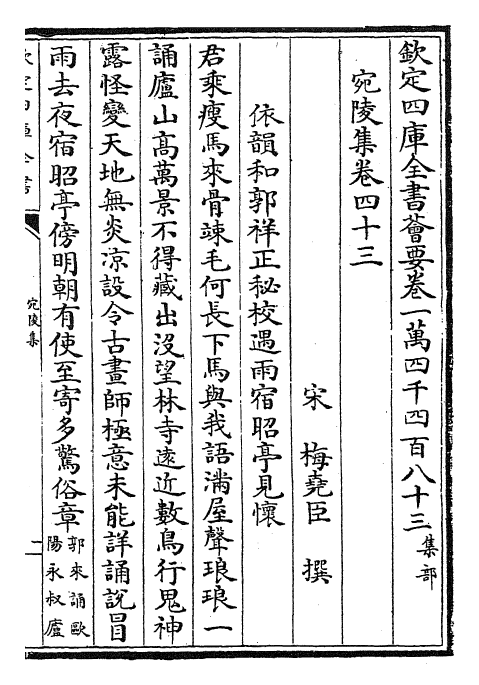 欽定四庫全書薈要卷一萬四千四百八十三集部
宛陵集卷四十三
宋 梅堯臣 撰
依韻和郭祥正秘校遇雨宿昭亭見懷
君乘瘦馬來骨竦毛何長下馬與我語滿屋聲琅琅一
誦廬山髙萬景不得藏出沒望林寺遠近數鳥行鬼神
露怪變天地無炎凉設令古畫師極意未能詳誦說冒
雨去夜宿昭亭傍明朝有使至寄多驚俗章郭來誦歐
陽永叔廬
宛陵集